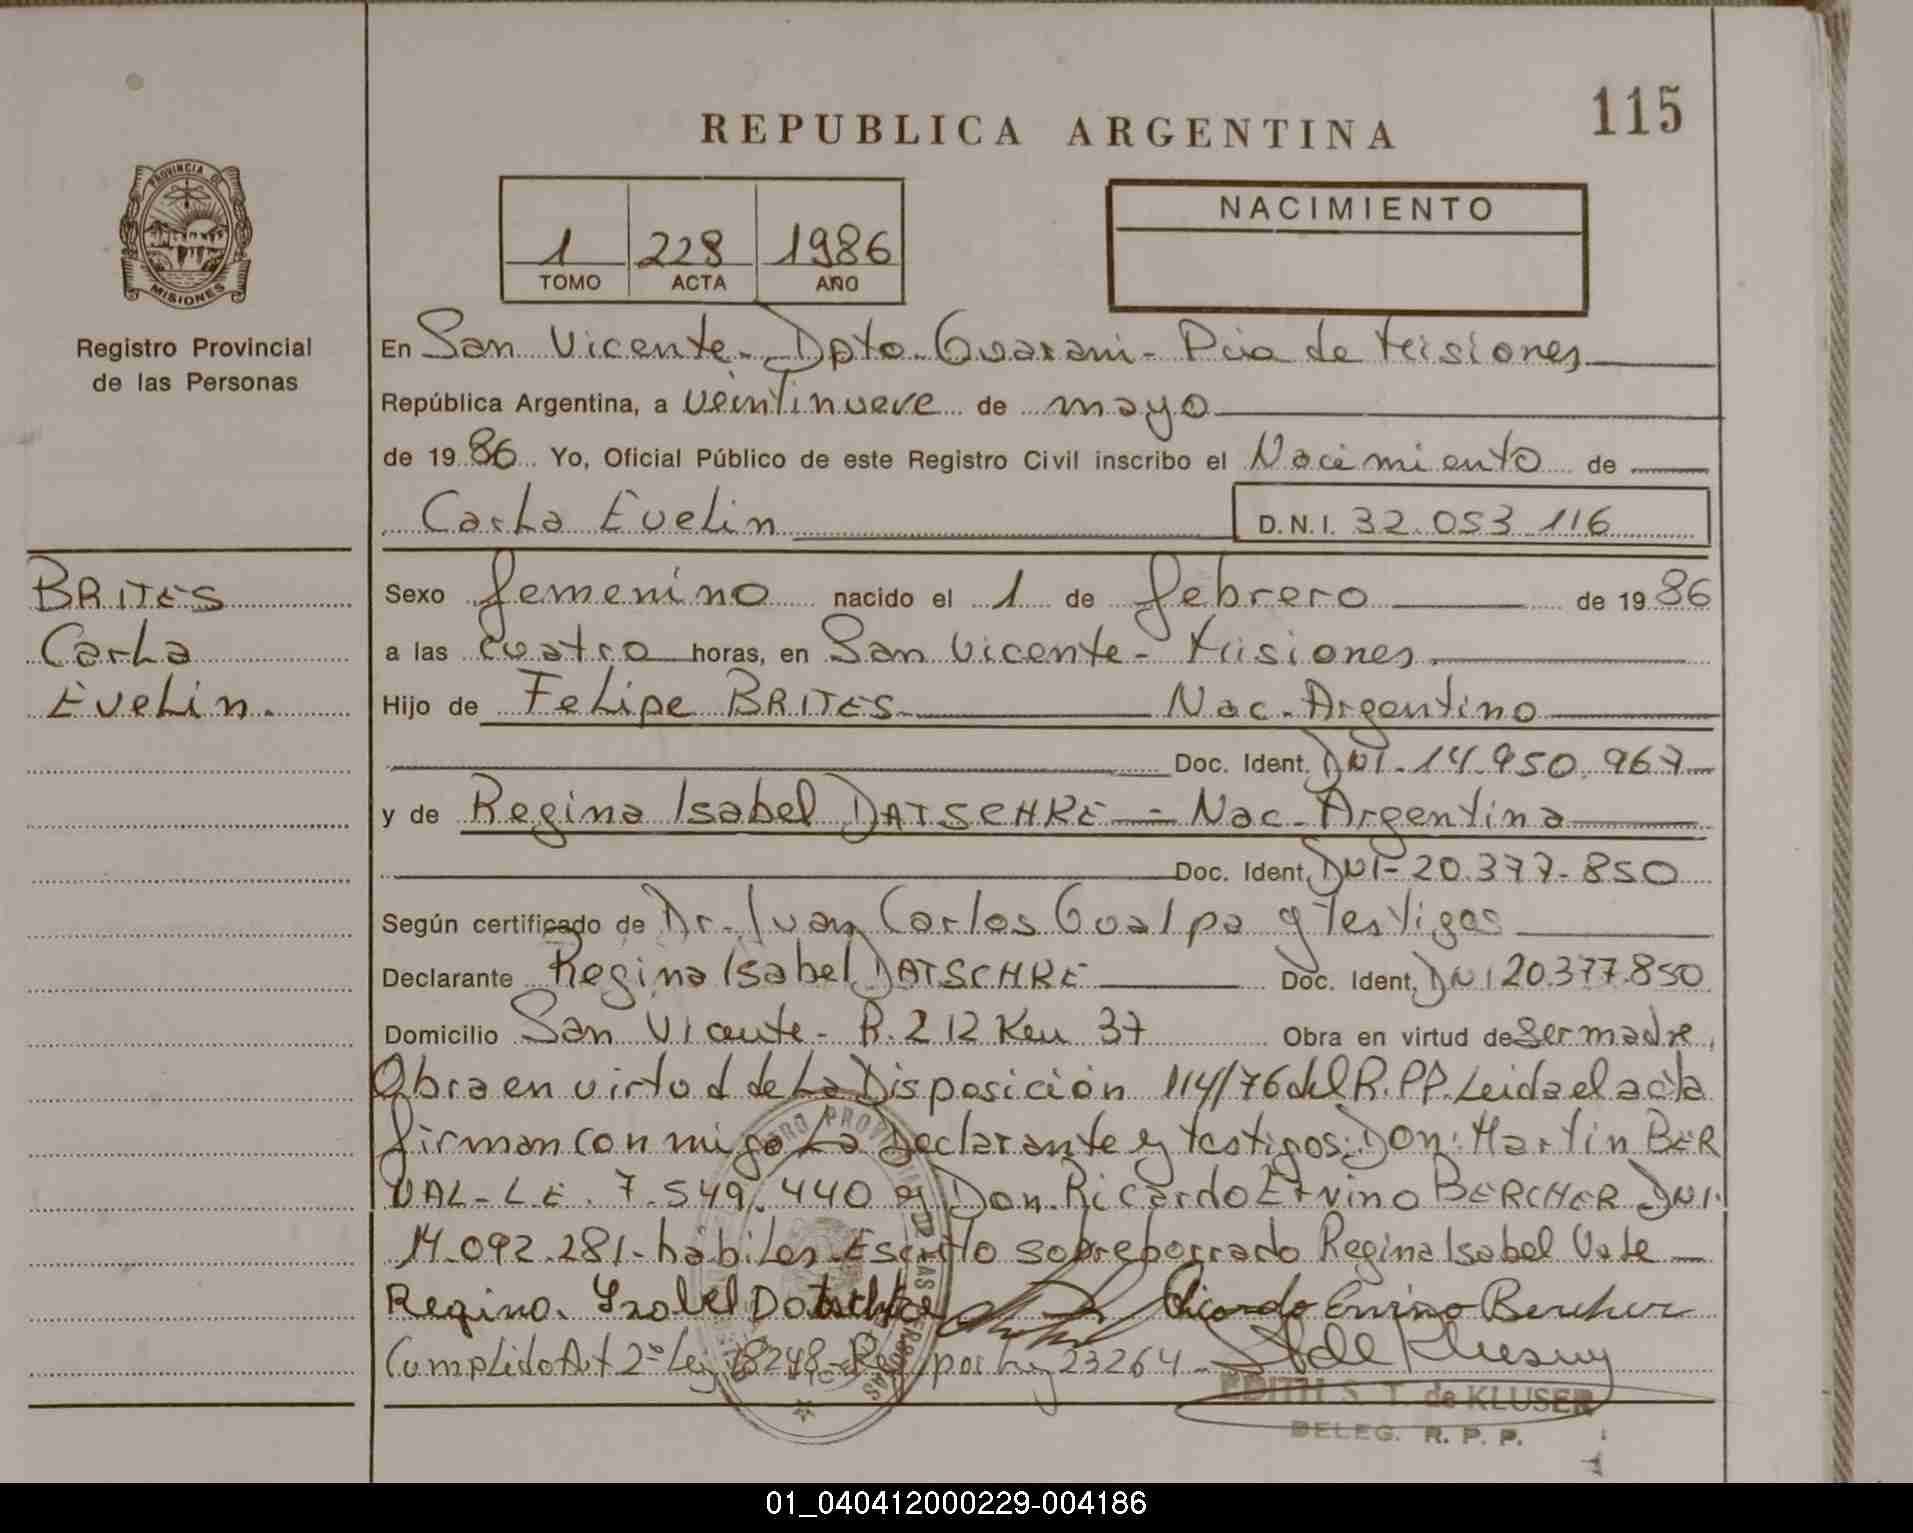 115
REPUBLICA ARGENTINA
PROVINCIA DE
MISIONES
Registro Provincial
de las Personas
1 228 1986
TOMO ACTA AÑO
NACIMIENTO
En San Vicente - Dpto Guarani - Pcia de Misiones
República Argentina, a veintinueve de mayo
de 19 86 Yo, Oficial Público de este Registro Civil inscribo el Nacimiento de
Carla Evelin D.N.I. 32.053.116
BRITES
Carla
Evelin.
Sexo femenino nacido el 1 de febrero de 19 86
a las cuatro horas, en San Vicente - Misiones
Hijo de Felipe BRITES Nac. Argentino
Doc. Ident. DNI - 14.950.967
y de Regina Isabel DATSCHKE - Nac. Argentina
Doc. Ident. DNI - 20.377-850
Según certificado de Dr. Juan Carlos Gualpa y Testigos
Declarante Regina Isabel DATSCHKE Doc. Ident. DNI 20.377.850
Domicilio San Vicente - R. 212 Km 37 Obra en virtud de Ser madre.
Obra en virtud de La Disposición 114/76 del R.P.P. Leida el acta
firman conmigo La Declarante y testigos: Don: Martin BER
NAL - L.E. 7.549.440 y Don. Ricardo Ervino BERCHER DNI.
14.092.281 - hábiles - Escrito sobreborrado Regina Isabel Vale
Regina Isabel Datschke Ricardo Ervino Bercher
Cumplido Art 2º Ley 18248 por Ley 23264 -
EDITH S. T. de KLUSER
DELEG. R. P. P.
01_040412000229-004186